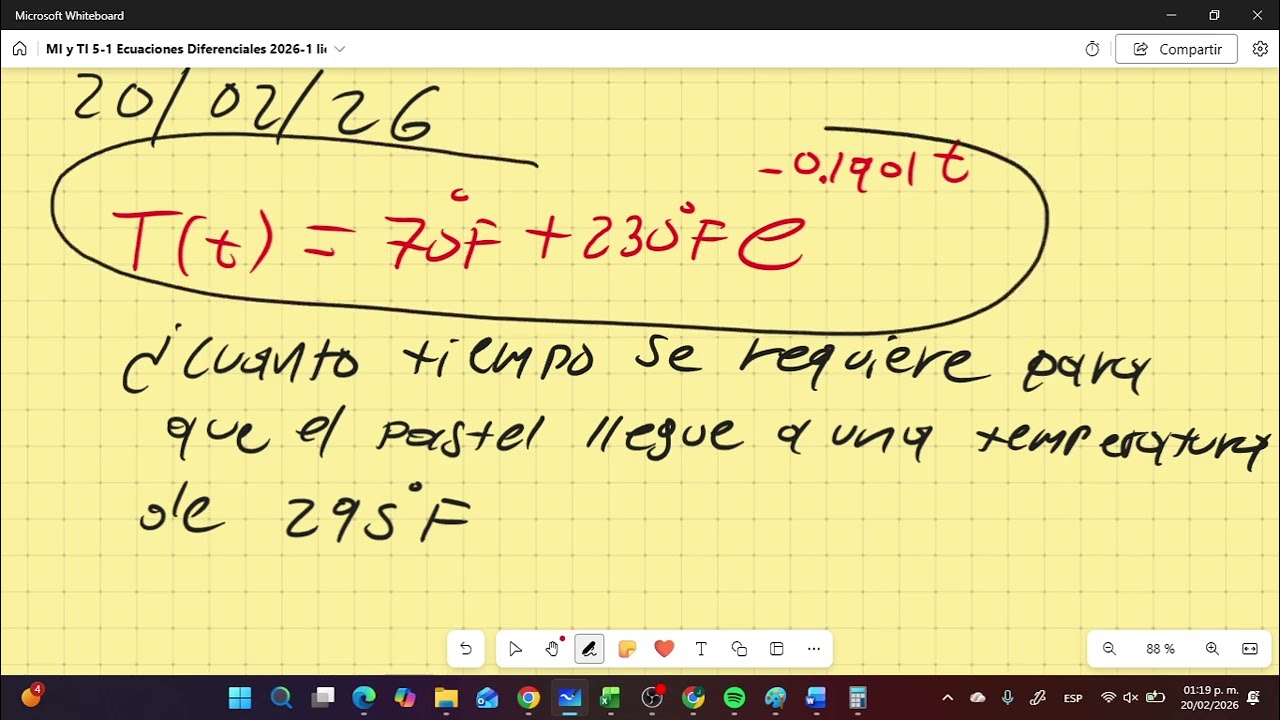 Microsoft Whiteboard
MI y TI 5-1 Ecuaciones Diferenciales 2026-1 lic
Compartir
20/02/26
T(t) = 70°F + 230°F e^-0.1901t
¿cuanto tiempo se requiere para
que el pastel llegue a una temperatura
de 295°F
88 %
4
ESP
01:19 p. m.
20/02/2026